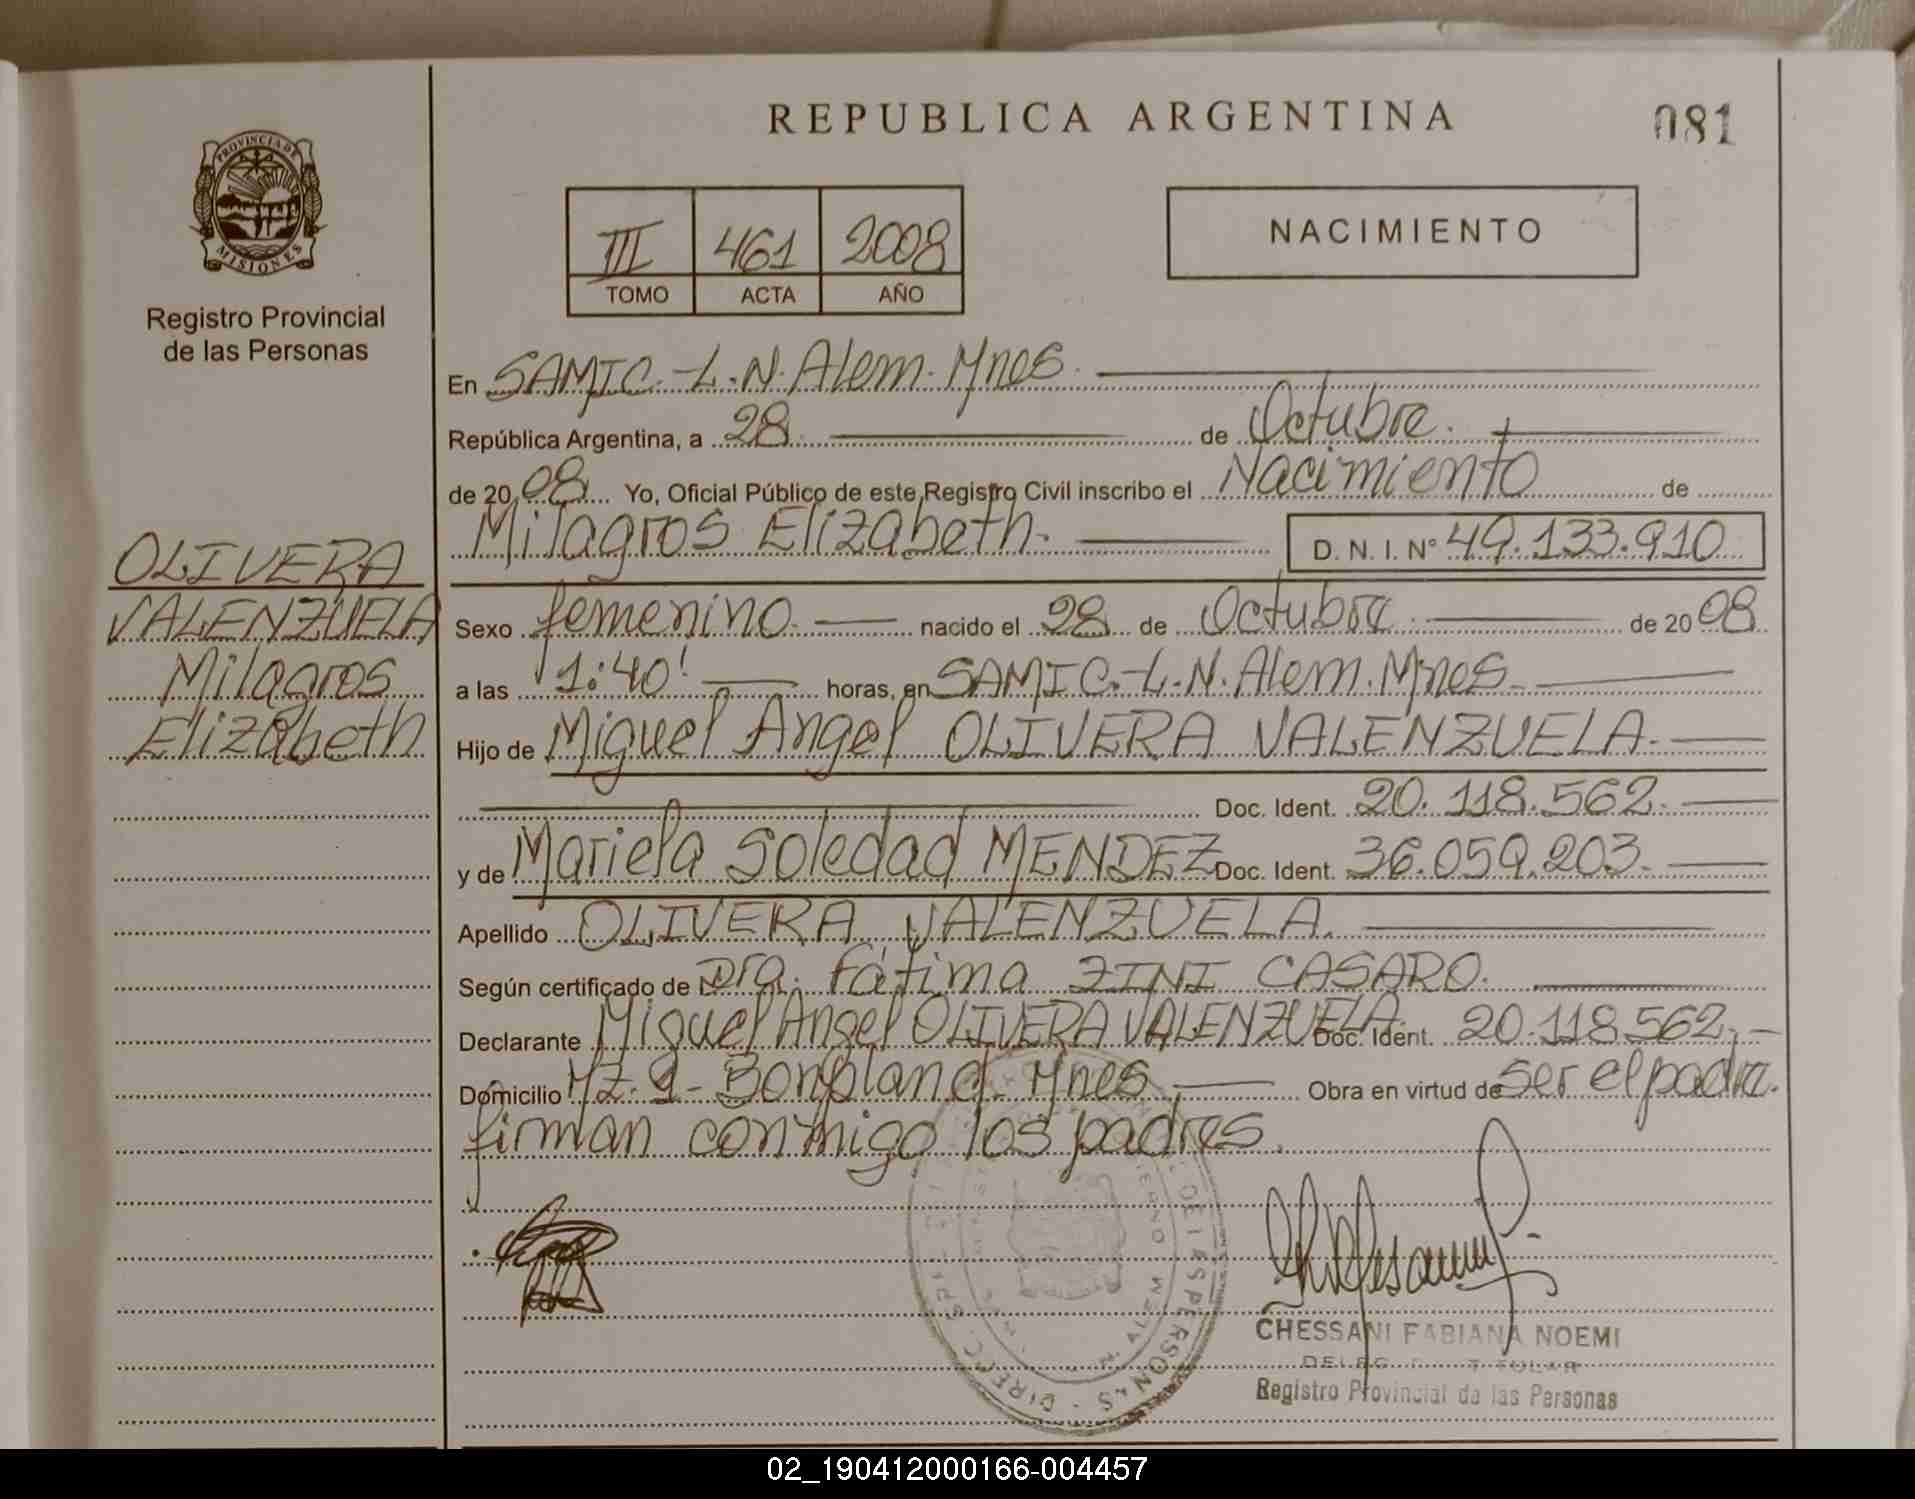 REPUBLICA ARGENTINA
081
PROVINCIA DE
MISIONES
Registro Provincial
de las Personas
III 461 2008
TOMO ACTA AÑO
NACIMIENTO
En SAMIC.-L.N.Alem.Mnes.
República Argentina, a 28 de Octubre.
de 2008 Yo, Oficial Público de este Registro Civil inscribo el Nacimiento de
Milagros Elizabeth. D. N. I. Nº 49.133.910
OLIVERA
VALENZUELA
Milagros
Elizabeth
Sexo femenino. nacido el 28 de Octubre de 2008
a las 1:40' horas, en SAMIC.-L.N.Alem.Mnes.
Hijo de Miguel Angel OLIVERA VALENZUELA.
Doc. Ident. 20.118.562.
y de Mariela Soledad MENDEZ Doc. Ident. 36.059.203.
Apellido OLIVERA VALENZUELA.
Según certificado de Dra. Fátima ZINI CASARO.
Declarante Miguel Angel OLIVERA VALENZUELA. Doc. Ident. 20.118.562.
Domicilio Mz. 9- Bonpland. Mnes. Obra en virtud de ser el padre.
firman conmigo los padres.
CHESSANI FABIANA NOEMI
TITULAR
Registro Provincial de las Personas
02_190412000166-004457